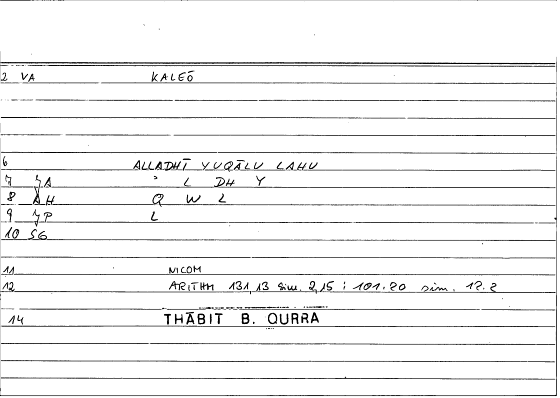 2 VA KALEŌ
6 ALLADHĪ YUQĀLU LAHU
7 JA ʾ L DH Y
8 AH Q W L
9 JP L
10 SG
11 NICOM
12 ARITHM 131,13 sim. 2,15 ; 101.20 sim. 12.2
14 THĀBIT B. QURRA